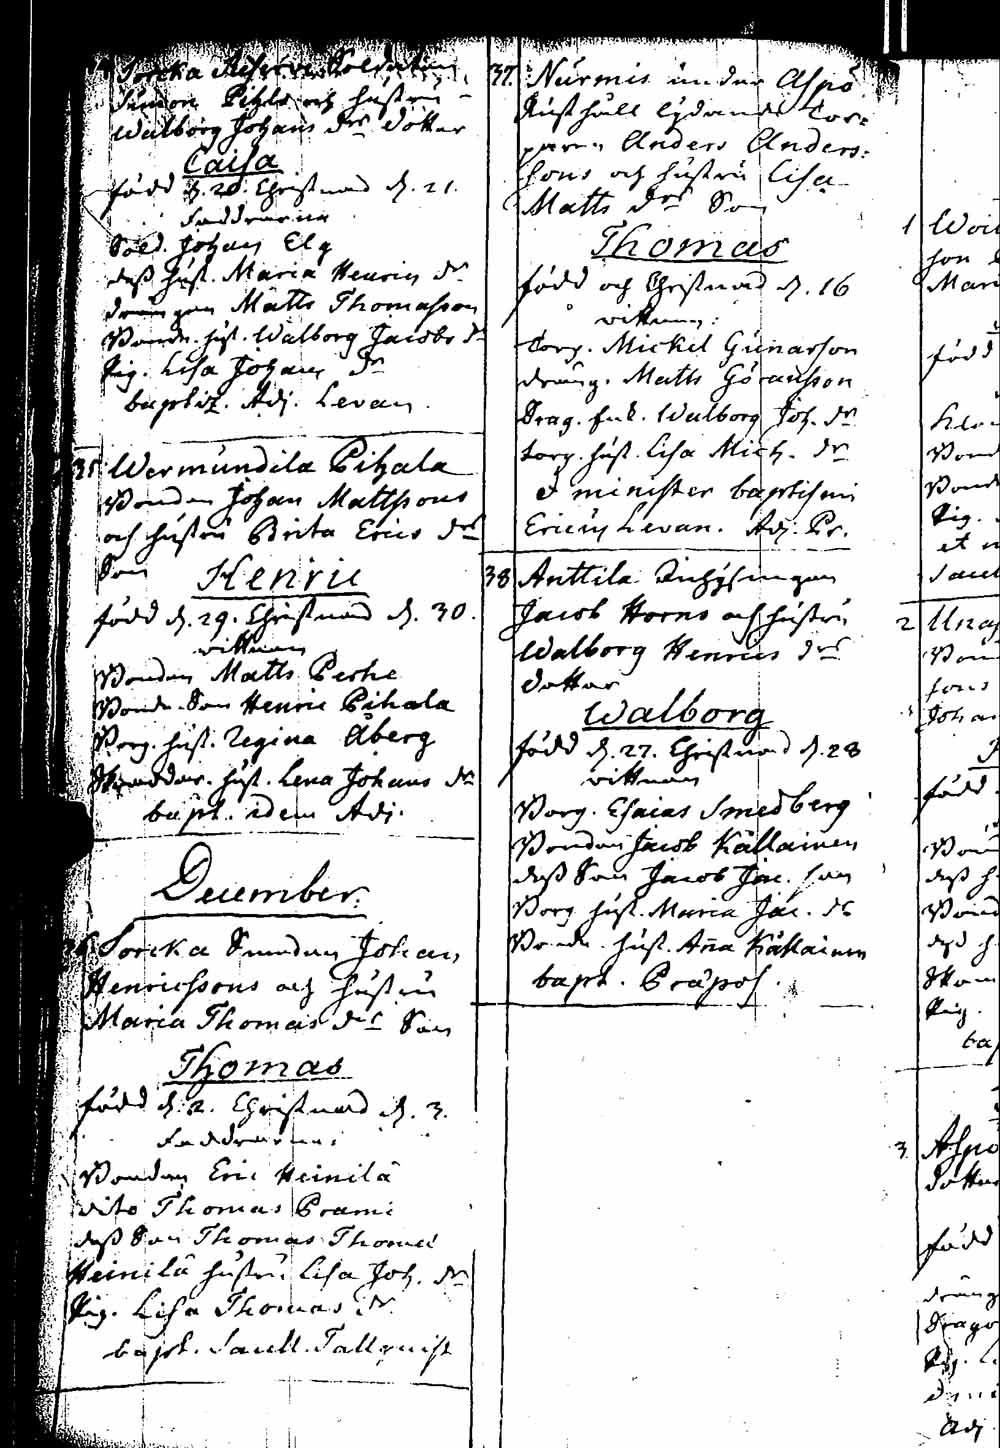 Sorcka Reserve Soldaten
Simon Pihls och hustru
Walborg Johans drs dotter
Caisa
född d. 20. Christnad d. 21.
Faddrarne
Sold. Johan Elg
dess hust. Maria Henrics dr
drängen Matts Thomasson
Bonde. hust. Walborg Jacobs dr
Pig. Lisa Johans dr
baptiz. Adj. Levan.
35 Wermundila Pihala
Bonden Johan Mattssons
och hustru Brita Erics drs
Son
Henric
född d. 29. Christnad d. 30.
vittnen
Bonden Matts Perhe
Bonde Son Henric Pihala
Borg. hust. Regina Åberg
Skreddar. hust. Lena Johans dr
bapt. idem Adj.
December.
36 Sorcka Johan
Henricssons och hustru
Maria Thomas drs Son
Thomas
född d. 2. Christnad d. 3.
Faddrarne:
Bonden Eric Heinilä
dito Thomas Prami
dess Son Thomas Thomæ
Heinilä hustru Lisa Joh. dr
Pig. Lisa Thomas dr
bapt. Sacell. Tallqvist
37. Nurmis under Aspö
Rusthåll lydande Tor-
paren Anders Anders-
sons och hustru Lisa
Matts drs Son
Thomas
född och Christnad d. 16
vittnen:
Torp. Mickel Gunarson
dräng. Matts Göransson
Drag. Enk. Walborg Joh. dr
torp. hust. Lisa Mich. dr
et minister baptismi
Ericus Levan. Adj. Pr.
38 Anttila
Jacob Horns och hustru
Walborg Henrics drs
dotter
Walborg
född d. 27. Christnad d. 28
vittnen
Borg. Esaias Smedberg
Bonden Jacob Källainen
dess Son Jacob Jac. son
Borg hust. Maria Jac. dr
Bonde. hust. Aña Källainen
bapt. Præpos.
1
son
Mari
född
Bond
Bonde
Pig.
et m
Sacell
2
Bon
sons
Johan
född
Bon
dess h
Bond
dess h
Pig.
ba
3 Aspö
dotter
född
dräng
Drago
Pig. L
Adj